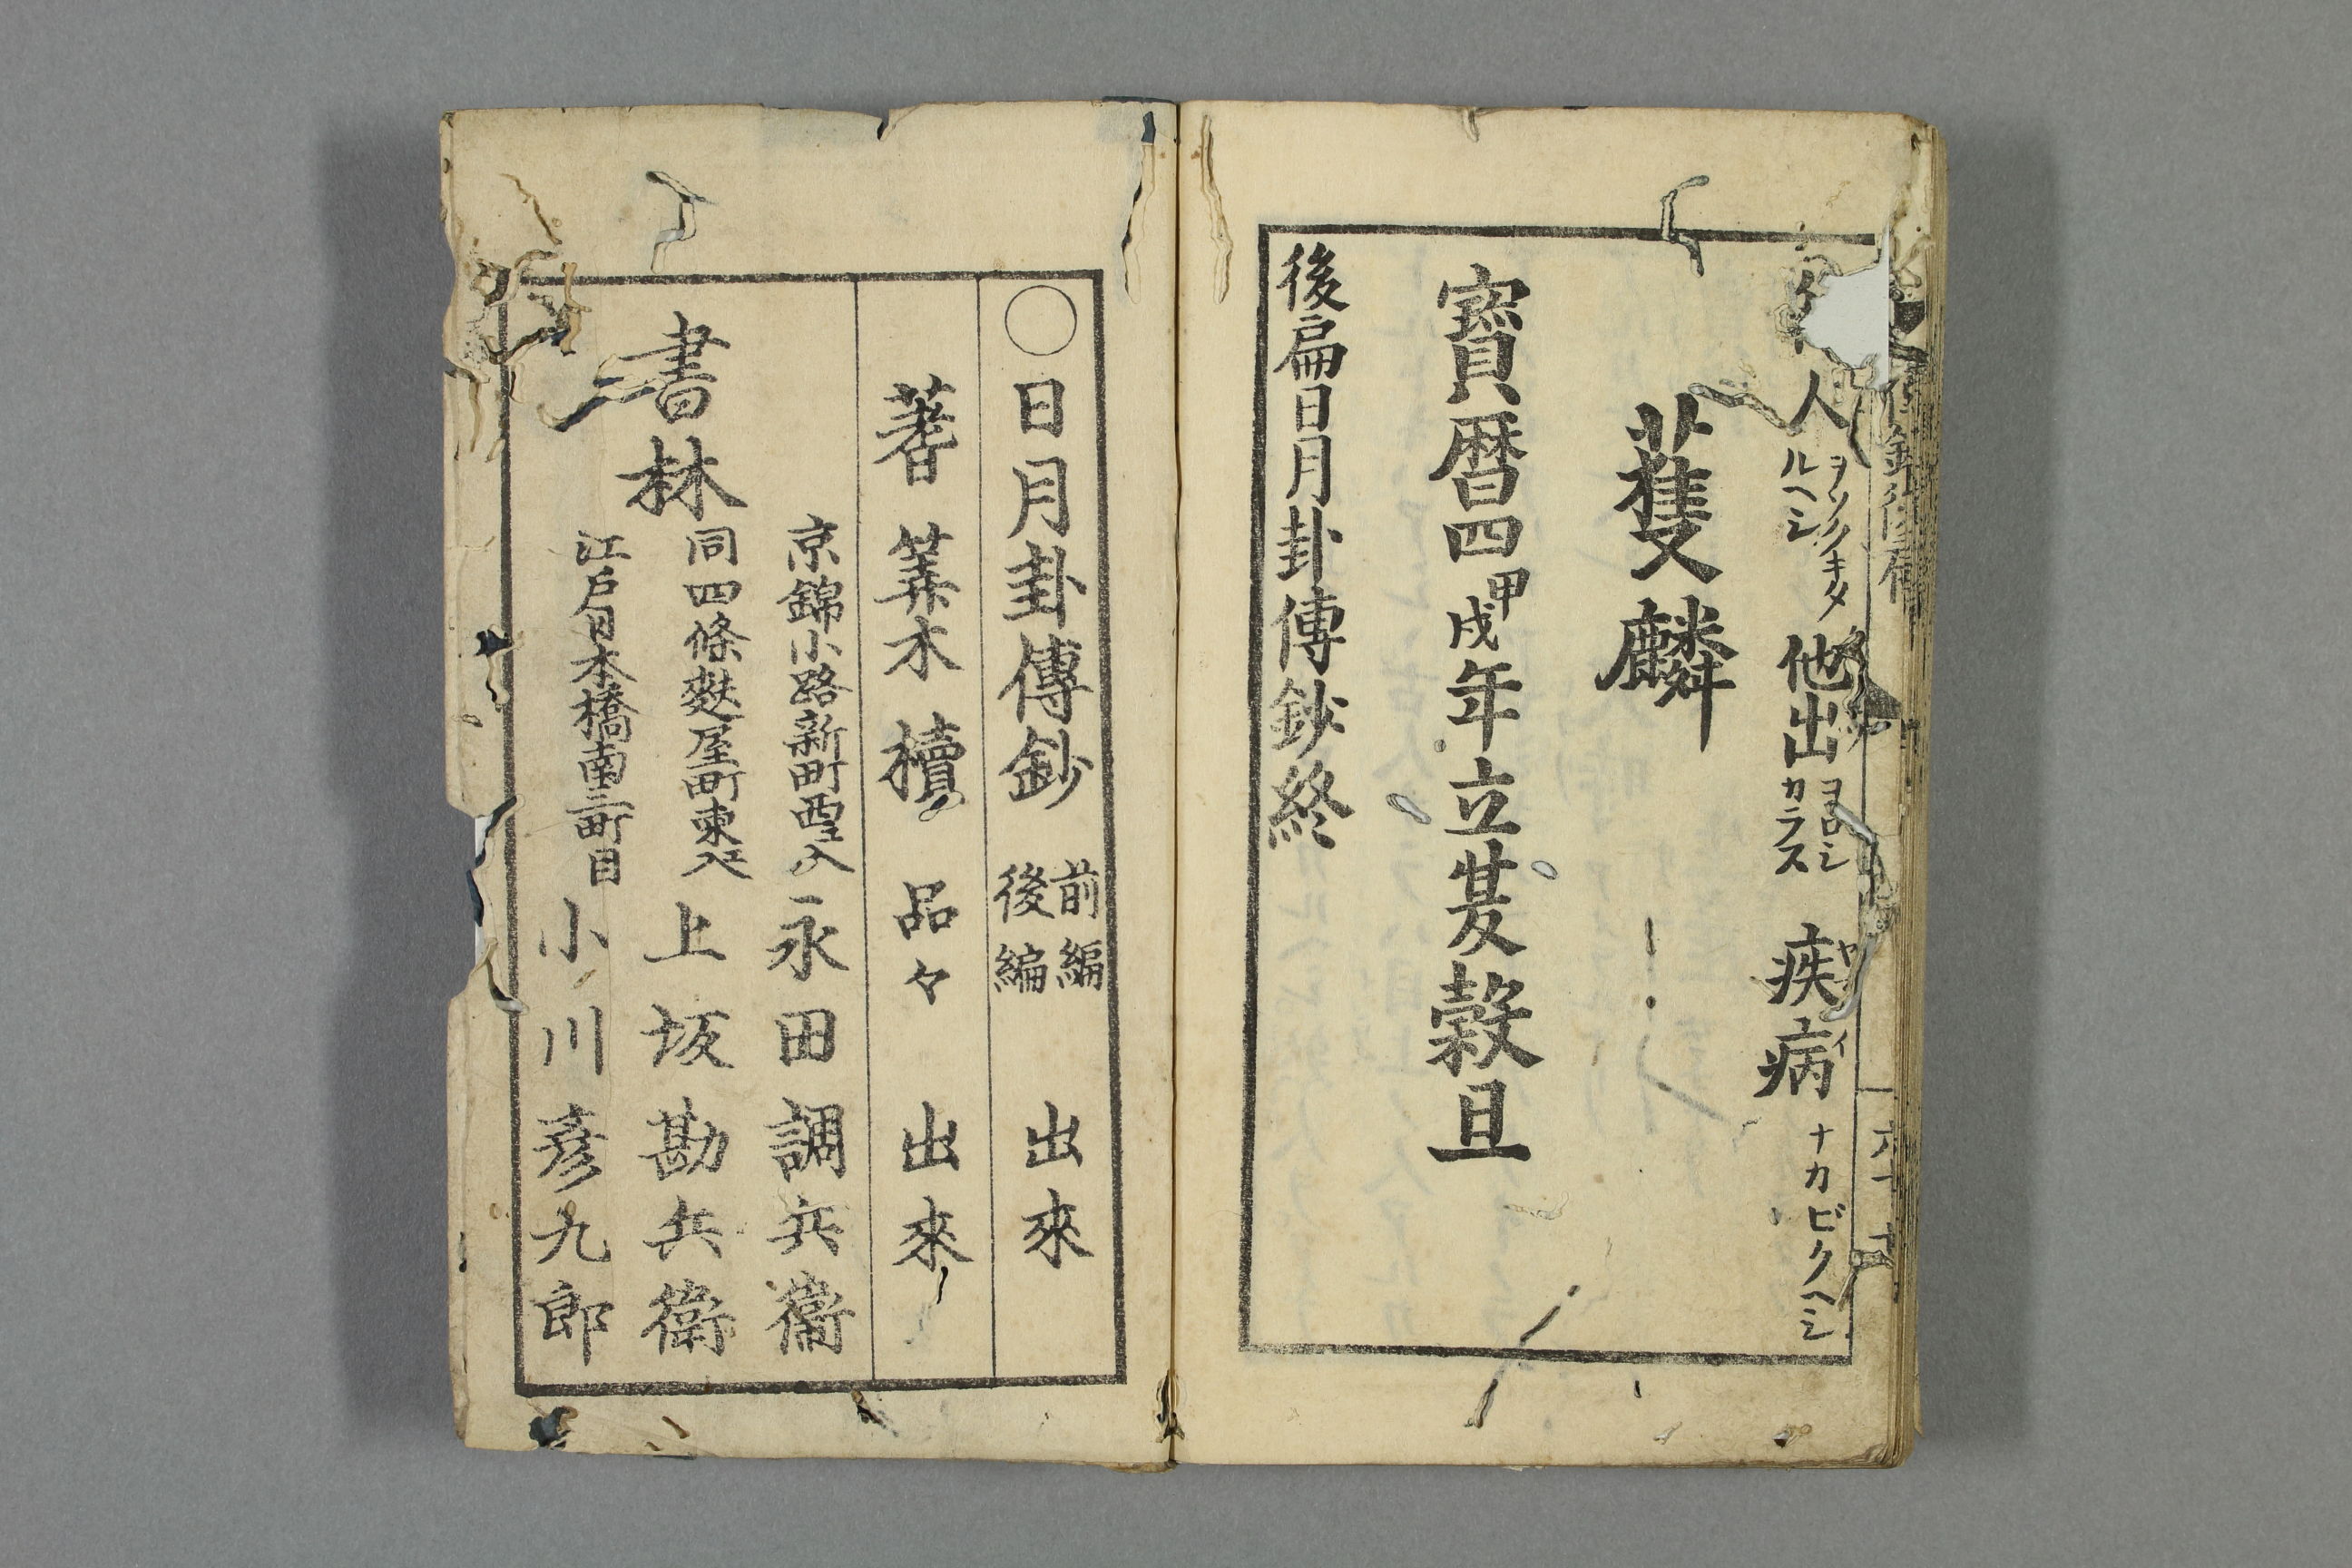 人 ヲソクキタルヘシ 他出 ヨロシカラス 疾病 ナカビクヘシ
蒦麟
寳暦四甲戌年立春穀旦
後扁日月卦傳鈔終
○日月卦傳鈔 前編後編 出來
蓍 筭木 櫝 品々 出來
書林
京錦小路新町西ヱ入 永田調兵衞
同四條麩屋町東ヱ入 上坂勘兵衞
江戸日本橋南三町目 小川彦九郎